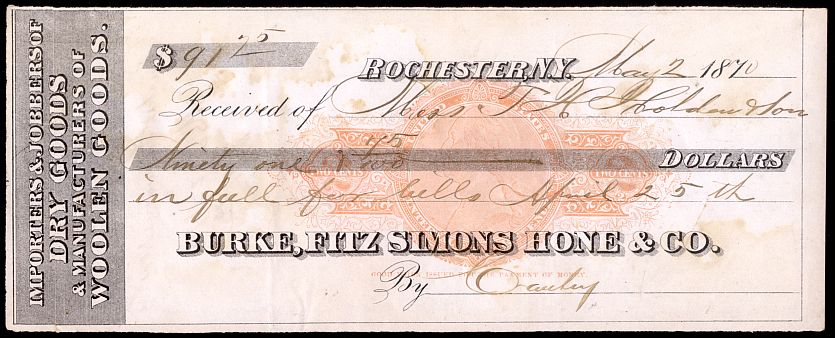 IMPORTERS & JOBBERS OF
DRY GOODS
& MANUFACTURERS OF
WOOLEN GOODS.
$ 91 75
ROCHESTER, N.Y. May 2 1870
Received of Mess T A Holden & Son
Ninety one & 75/100 DOLLARS
in full for bills April 25th
TWO CENTS TWO CENTS
BURKE, FITZ SIMONS HONE & CO.
GOOD ISSUED FOR THE PAYMENT OF MONEY.
By